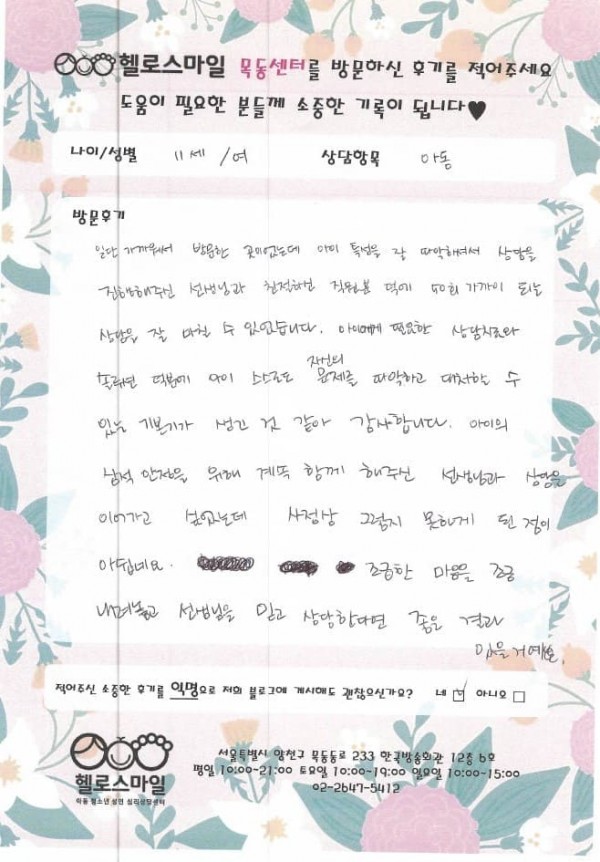 헬로스마일 목동센터를 방문하신 후기를 적어주세요
도움이 필요한 분들께 소중한 기록이 됩니다♥
나이/성별 11세 /여 상담항목 아동
방문후기
일단 가까워서 방문한 곳이었는데 아이 특성을 잘 파악하셔서 상담을
진행해주신 선생님과 친절하신 직원분 덕에 40회 가까이 되는
상담을 잘 마칠 수 있었습니다. 아이에게 필요한 상담치료와
솔루션 덕분에 아이 스스로도 자신의 문제를 파악하고 대처할 수
있는 기본기가 생긴 것 같아 감사합니다. 아이의
심적 안정을 위해 계속 함께 해주신 선생님과 상담을
이어가고 싶었는데 사정상 그렇지 못하게 된 점이
아쉽네요. 조급한 마음을 조금
내려놓고 선생님을 믿고 상담한다면 좋은 결과
있을거예요.
적어주신 소중한 후기를 익명으로 저희 블로그에 게시해도 괜찮으신가요? 네 ☑ 아니오 □
헬로스마일
아동 청소년 성인 심리상담센터
서울특별시 양천구 목동동로 233 한국방송회관 12층 6호
평일 10:00-21:00 토요일 10:00-19:00 일요일 10:00-15:00
02-2647-5412